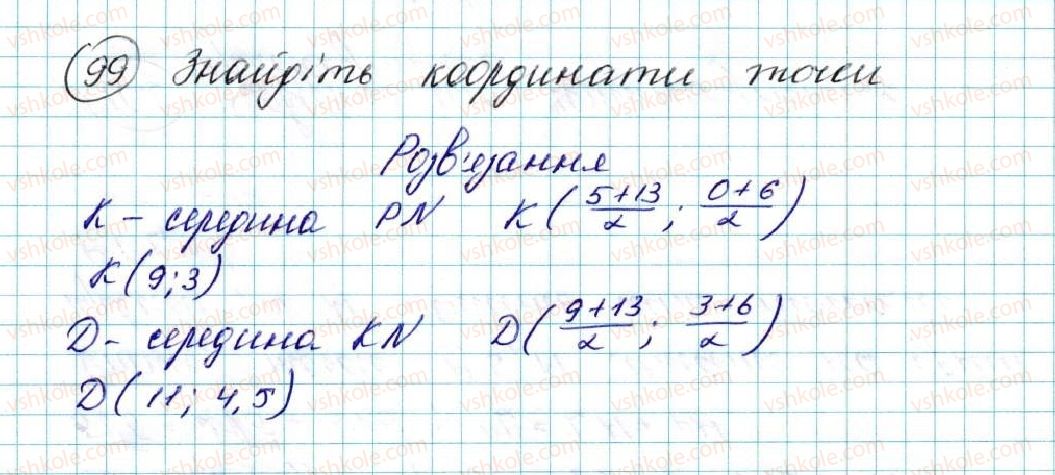 99 Знайдіть координати точки
Розв'язання
К – середина PN K( (5+13)/2 ; (0+6)/2 )
К(9;3)
Д – середина KN Д( (9+13)/2 ; (3+6)/2 )
Д(11; 4,5)